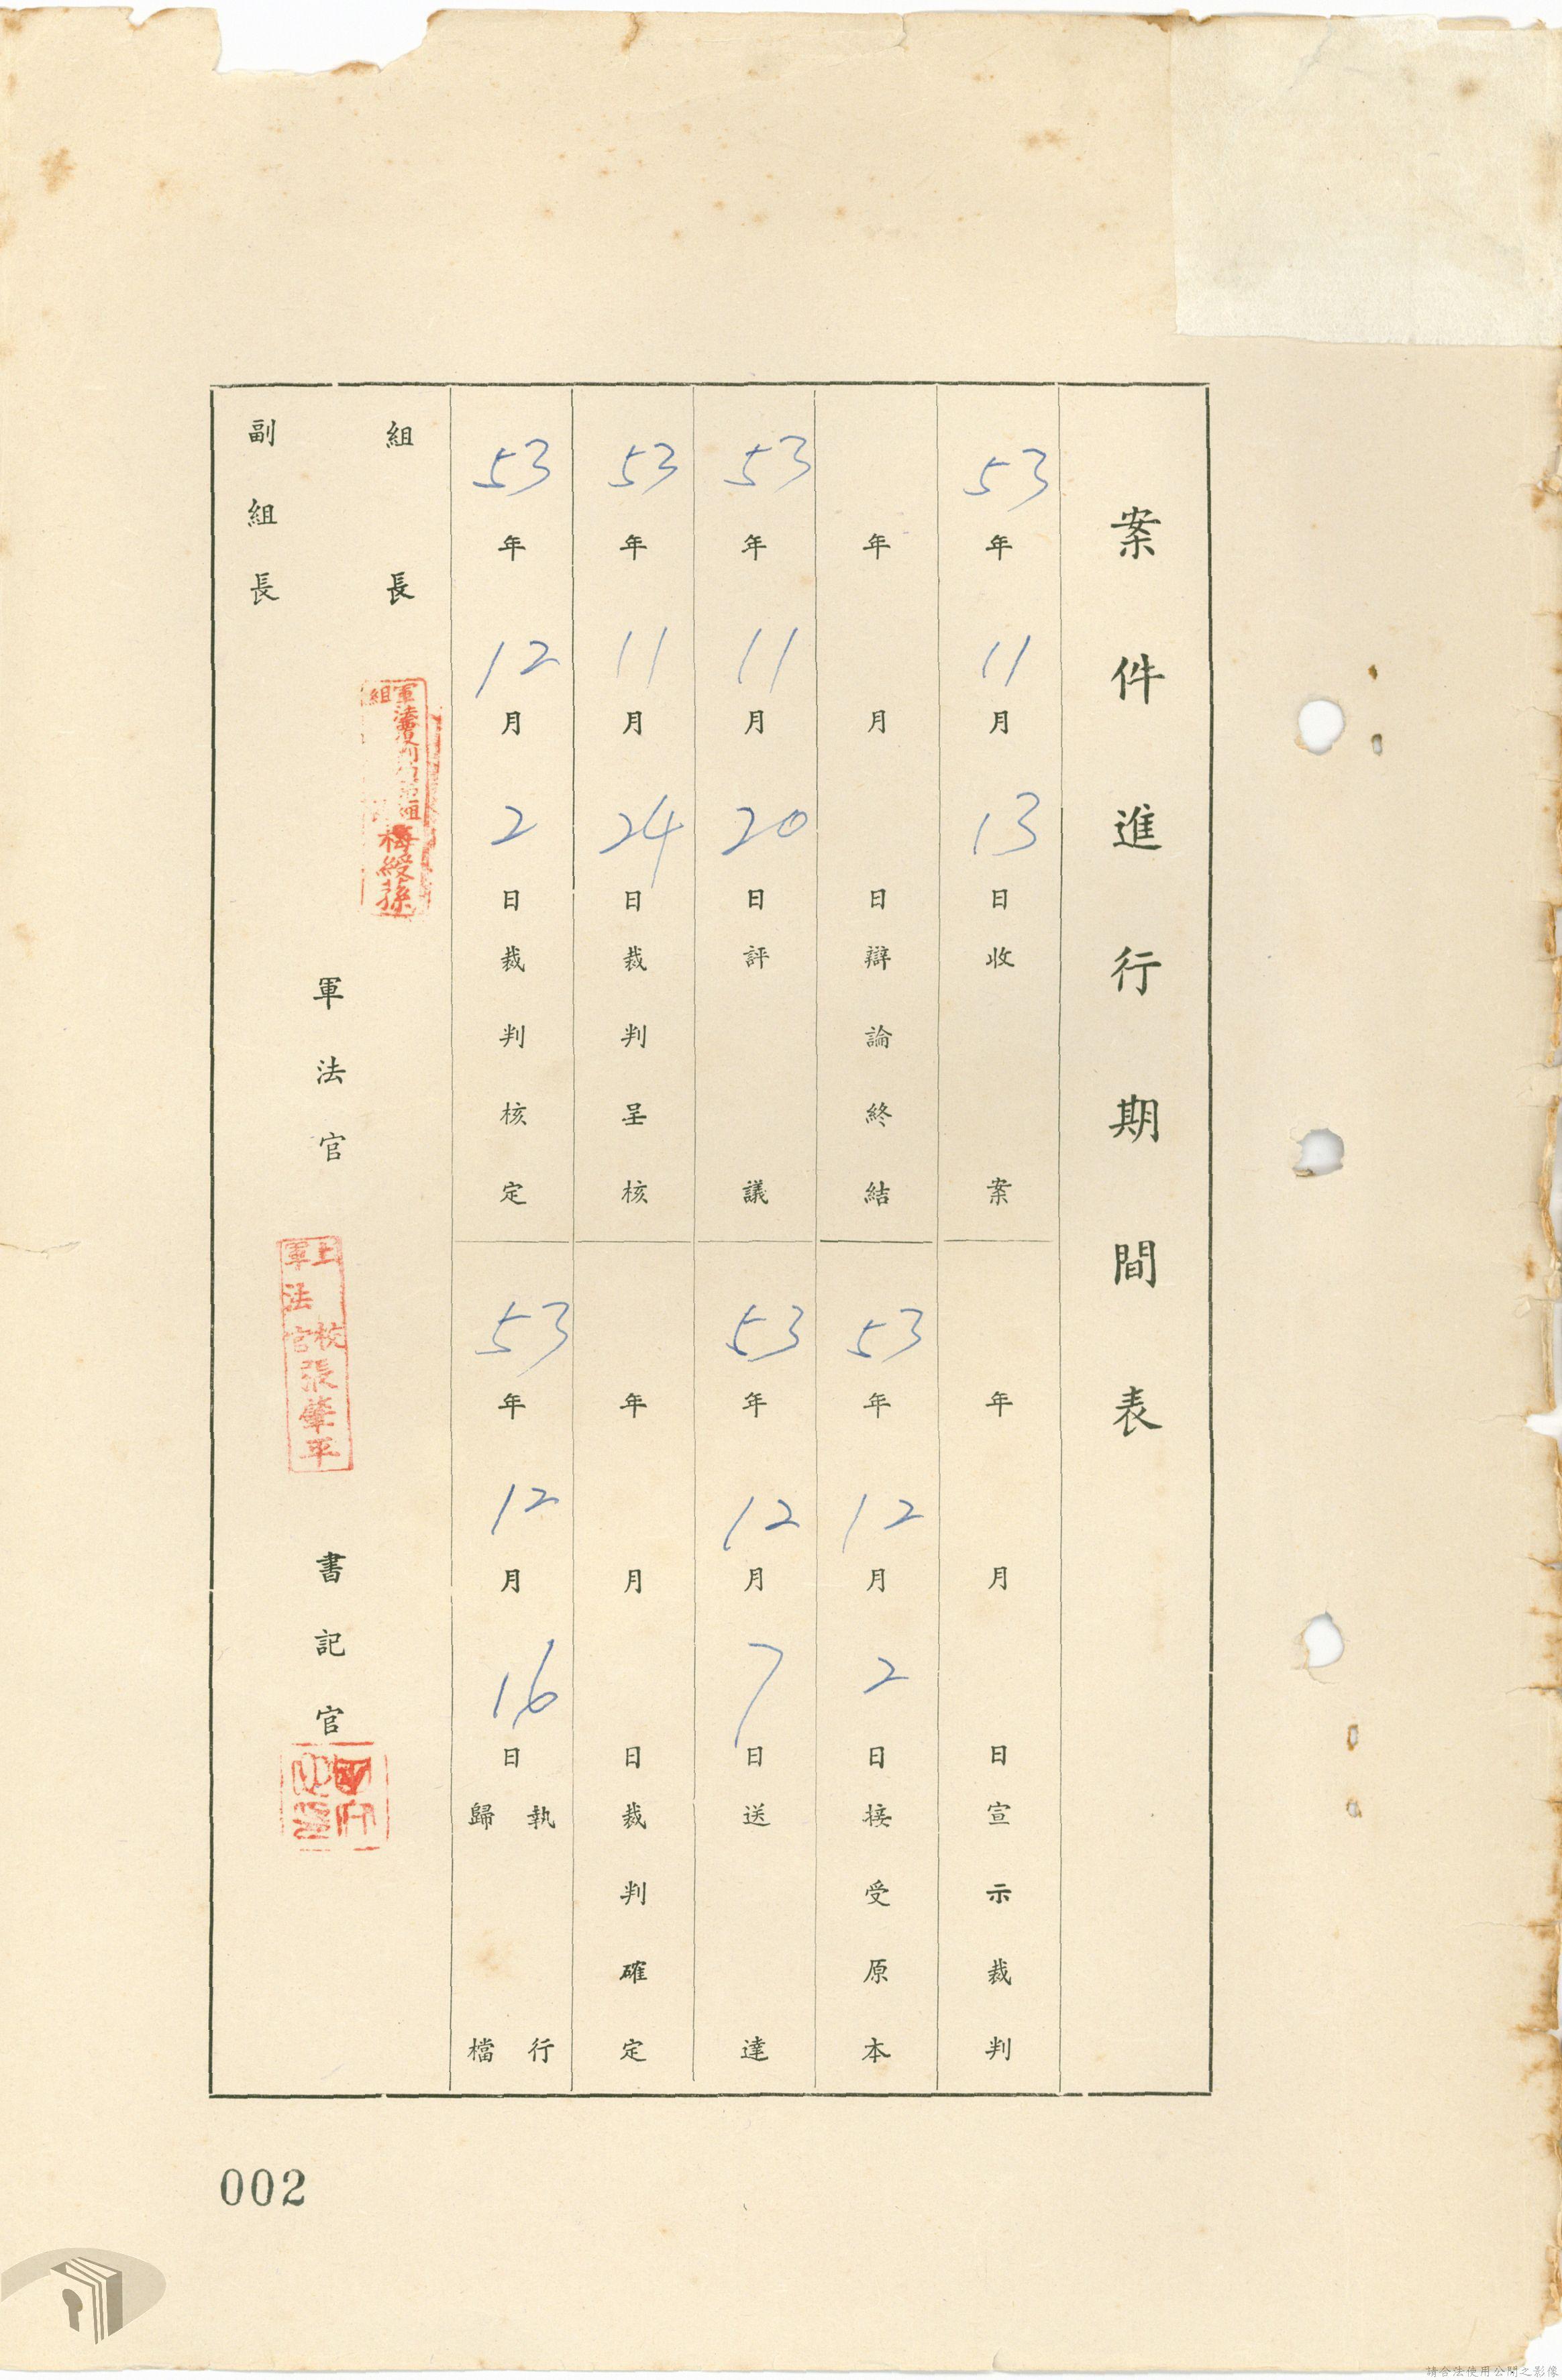 案件進行期間表
53年11月13日收案
年月日宣示裁判
年月日辯論終結
53年12月2日接受原本
53年11月20日評議
53年12月7日送達
53年11月24日裁判呈核
年月日裁判確定
53年12月2日裁判核定
53年12月16日執行歸檔
組長
梅綬孫
副組長
軍法官
上校
軍法官
張肇平
書記官
002
請合法使用公開之影像